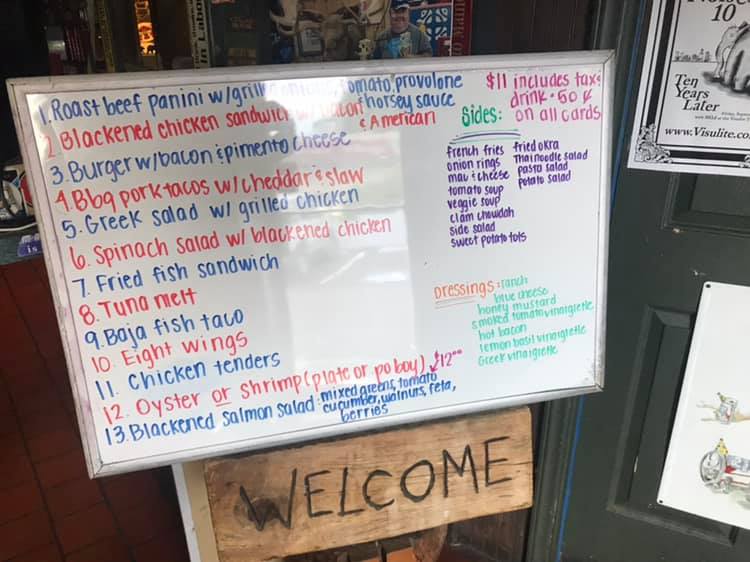 1. Roast beef panini w/grilled onions, tomato, provolone
& horsey sauce
2. Blackened chicken sandwich w/ bacon
& American
3. Burger w/bacon & pimento cheese
4. Bbq pork tacos w/cheddar & slaw
5. Greek salad w/ grilled chicken
6. Spinach salad w/ blackened chicken
7. Fried fish sandwich
8. Tuna melt
9. Baja fish taco
10. Eight wings
11. Chicken tenders
12. Oyster or shrimp (plate or po boy) $12⁰⁰
13. Blackened salmon salad: mixed greens, tomato
cucumber, walnuts, feta,
berries
$11 includes tax &
drink • 50 ¢
on all cards
Sides:
french fries
onion rings
mac & cheese
tomato soup
veggie soup
clam chowdah
side salad
sweet potato tots
fried okra
Thai noodle salad
pasta salad
potato salad
Dressings: ranch
blue cheese
honey mustard
smoked tomato vinaigrette
hot bacon
lemon basil vinaigrette
Greek vinaigrette
WELCOME
10
Ten
Years
Later
www.Visulite.co